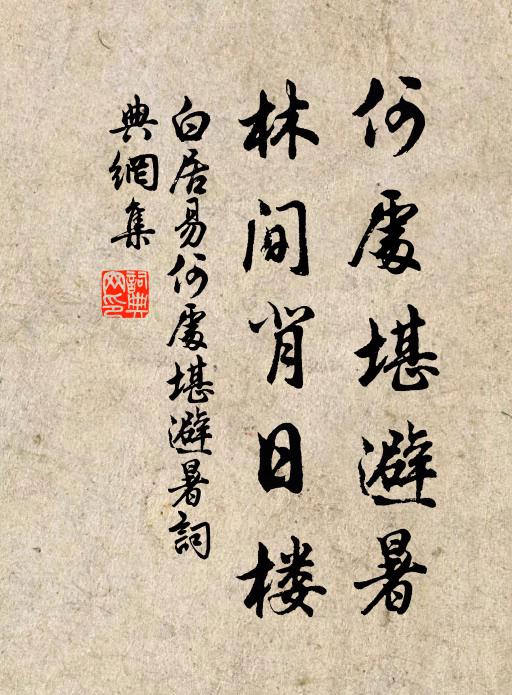 何處堪避暑
林間背日楼
白居易何處堪避暑詞
典網集
詞典網印